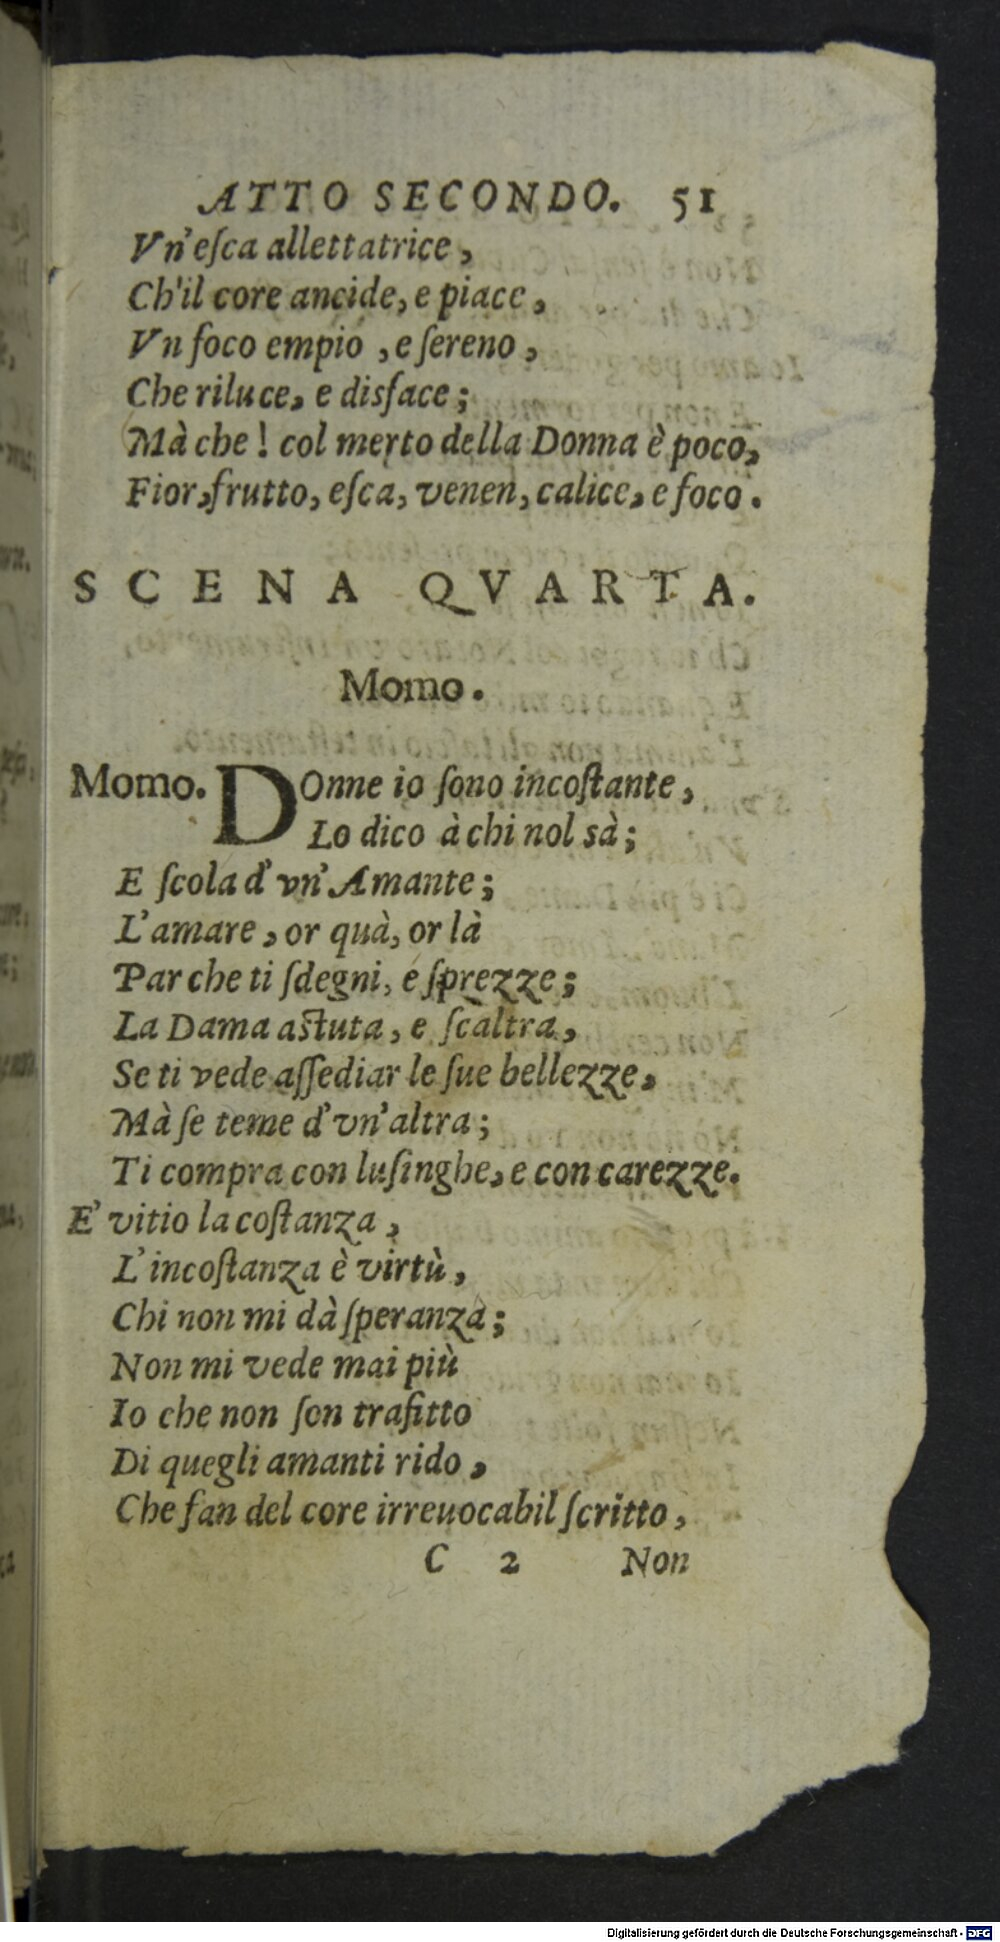 ATTO SECONDO. 51
Vn'eſca allettatrice,
Ch'il core ancide, e piace,
Vn foco empio, e ſereno,
Che riluce, e disface;
Mà che! col merto della Donna è poco,
Fior, frutto, eſca, venen, calice, e foco.
SCENA QVARTA.
Momo.
Momo. DOnne io ſono incoſtante,
Lo dico à chi nol sà;
E ſcola d'vn'Amante;
L'amare, or quà, or là
Par che ti ſdegni, e ſprezze;
La Dama aſtuta, e ſcaltra,
Se ti vede aſſediar le ſue bellezze,
Mà ſe teme d'vn'altra;
Ti compra con luſinghe, e con carezze.
E' vitio la coſtanza,
L'incoſtanza è virtù,
Chi non mi dà ſperanza;
Non mi vede mai più
Io che non ſon trafitto
Di quegli amanti rido,
Che fan del core irreuocabil ſcritto,
C 2 Non
Digitalisierung gefördert durch die Deutsche Forschungsgemeinschaft - DFG